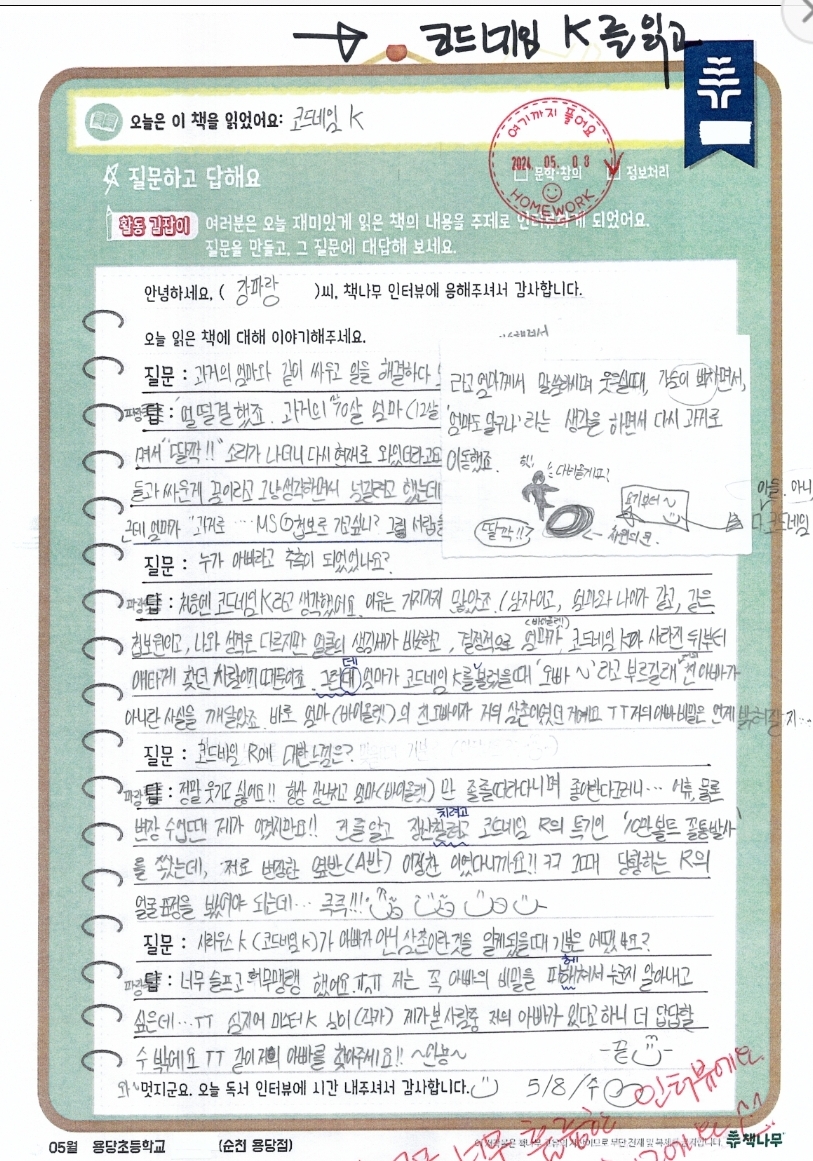 → 코드네임 K를 읽고
오늘은 이 책을 읽었어요: 코드네임 K
여기까지 풀어요
2024. 05. 08
HOMEWORK
질문하고 답해요
문학·창의
정보처리
활동 길잡이 여러분은 오늘 재미있게 읽은 책의 내용을 주제로 인터뷰하게 되었어요.
질문을 만들고, 그 질문에 대답해 보세요.
안녕하세요, ( 강파랑 )씨, 책나무 인터뷰에 응해주셔서 감사합니다.
오늘 읽은 책에 대해 이야기해주세요.
질문 : 과거의 엄마와 같이 싸우고 일을 해결하다
답 : 얼떨결했죠. 과거의 엄마 (12살
며서 "딸깍!!" 소리가 나더니 다시 현재로 와있더라고요
들과 싸운게 꿈이라고 그냥생각하면서 넘길려고 했는데
근데 엄마가 "과거로 … MSG첩보로 가고싶니? 그럼 서랍을
라고 엄마께서 말씀하시며 웃으실때, 가슴이 벅차면서,
'엄마도 알구나' 라는 생각을 하면서 다시 과거로
이동했죠.
딸깍!!?
← 차원의문
여기부터~
질문 : 누가 아빠라고 추측이 되었었나요?
답 : 처음엔 코드네임 K라고 생각했어요. 이유는 가지가지 많았죠. (남자이고, 엄마와 나이가 같고, 같은
첩보원이고, 나와 성격은 다르지만 얼굴의 생김새가 비슷하고, 결정적으로 엄마가(바이올렛) 코드네임 K가 사라진 뒤부터
애타게 찾던 사람이기 때문이죠. 그런데 엄마가 코드네임 K를 불렀을때 '오빠~' 라고 부르길래 전 아빠가
아니란 사실을 깨달았죠. 바로 엄마(바이올렛)의 친오빠이자 저의 삼촌이였던 거예요 TT 저의 아빠 비밀은 언제 밝혀질지…
질문 : 코드네임 R에 대한 느낌은?
답 : 정말 웃기고 싫어요!! 항상 장난치고 엄마(바이올렛)만 졸졸 따라다니며 좋아한다그러니… 어휴, 물론
변장 수업땐 제가 이겼지만요!! 전줄알고 장난칠려고 치려고 코드네임 R의 특기인 '10만볼트 꼴통발사'
를 쐈는데, 저로 변장한 옆반(A반) 이정찬 이였다니까요!! ㅋㅋ 그때 당황하는 R의
얼굴표정을 봤어야 되는데… 큭큭!!!
질문 : 시리우스 K (코드네임 K)가 아빠가 아닌 삼촌이란것을 알게됬을때 기분은 어땠나요?
답 : 너무 슬프고 허무맹랭 했어요. ㅠㅠ 저는 꼭 아빠의 비밀을 파헤쳐서 누군지 알아내고
싶은데…TT 심지어 미스터K 님이(작가) 제가본 사람중 저의 아빠가 있다고 하니 더 답답할
수 밖에요 TT 같이 저희 아빠를 찾아주세요!! ~안뇽~ -끝-
와~ 멋지군요. 오늘 독서 인터뷰에 시간 내주셔서 감사합니다. 5/8/수
인터뷰에요
05월 용당초등학교 (순천 용당점)
책나무